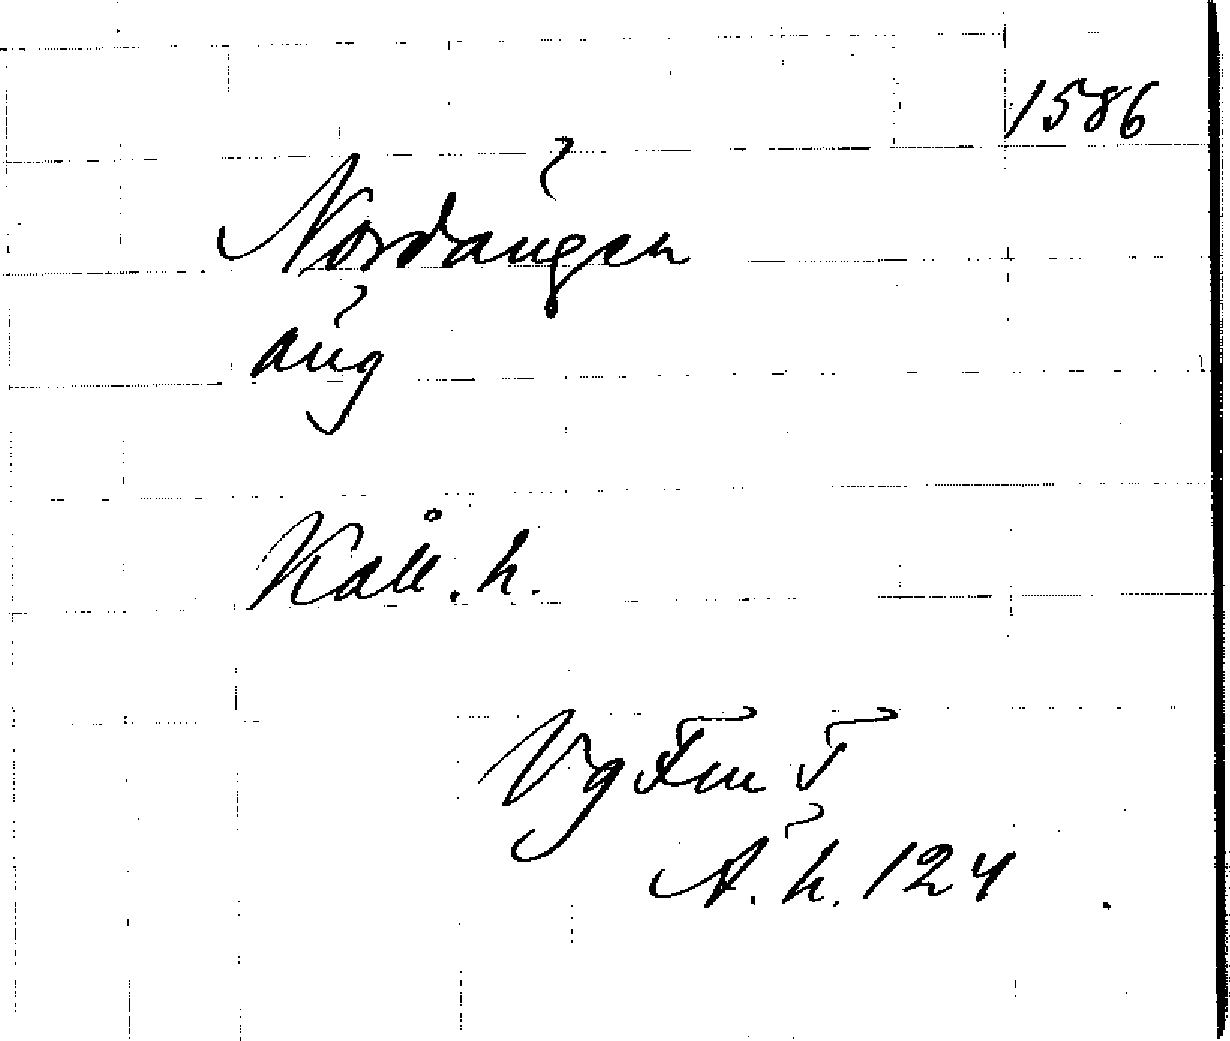 1586
Nordängen
äng
Kåll. h.
Vg
h. 124